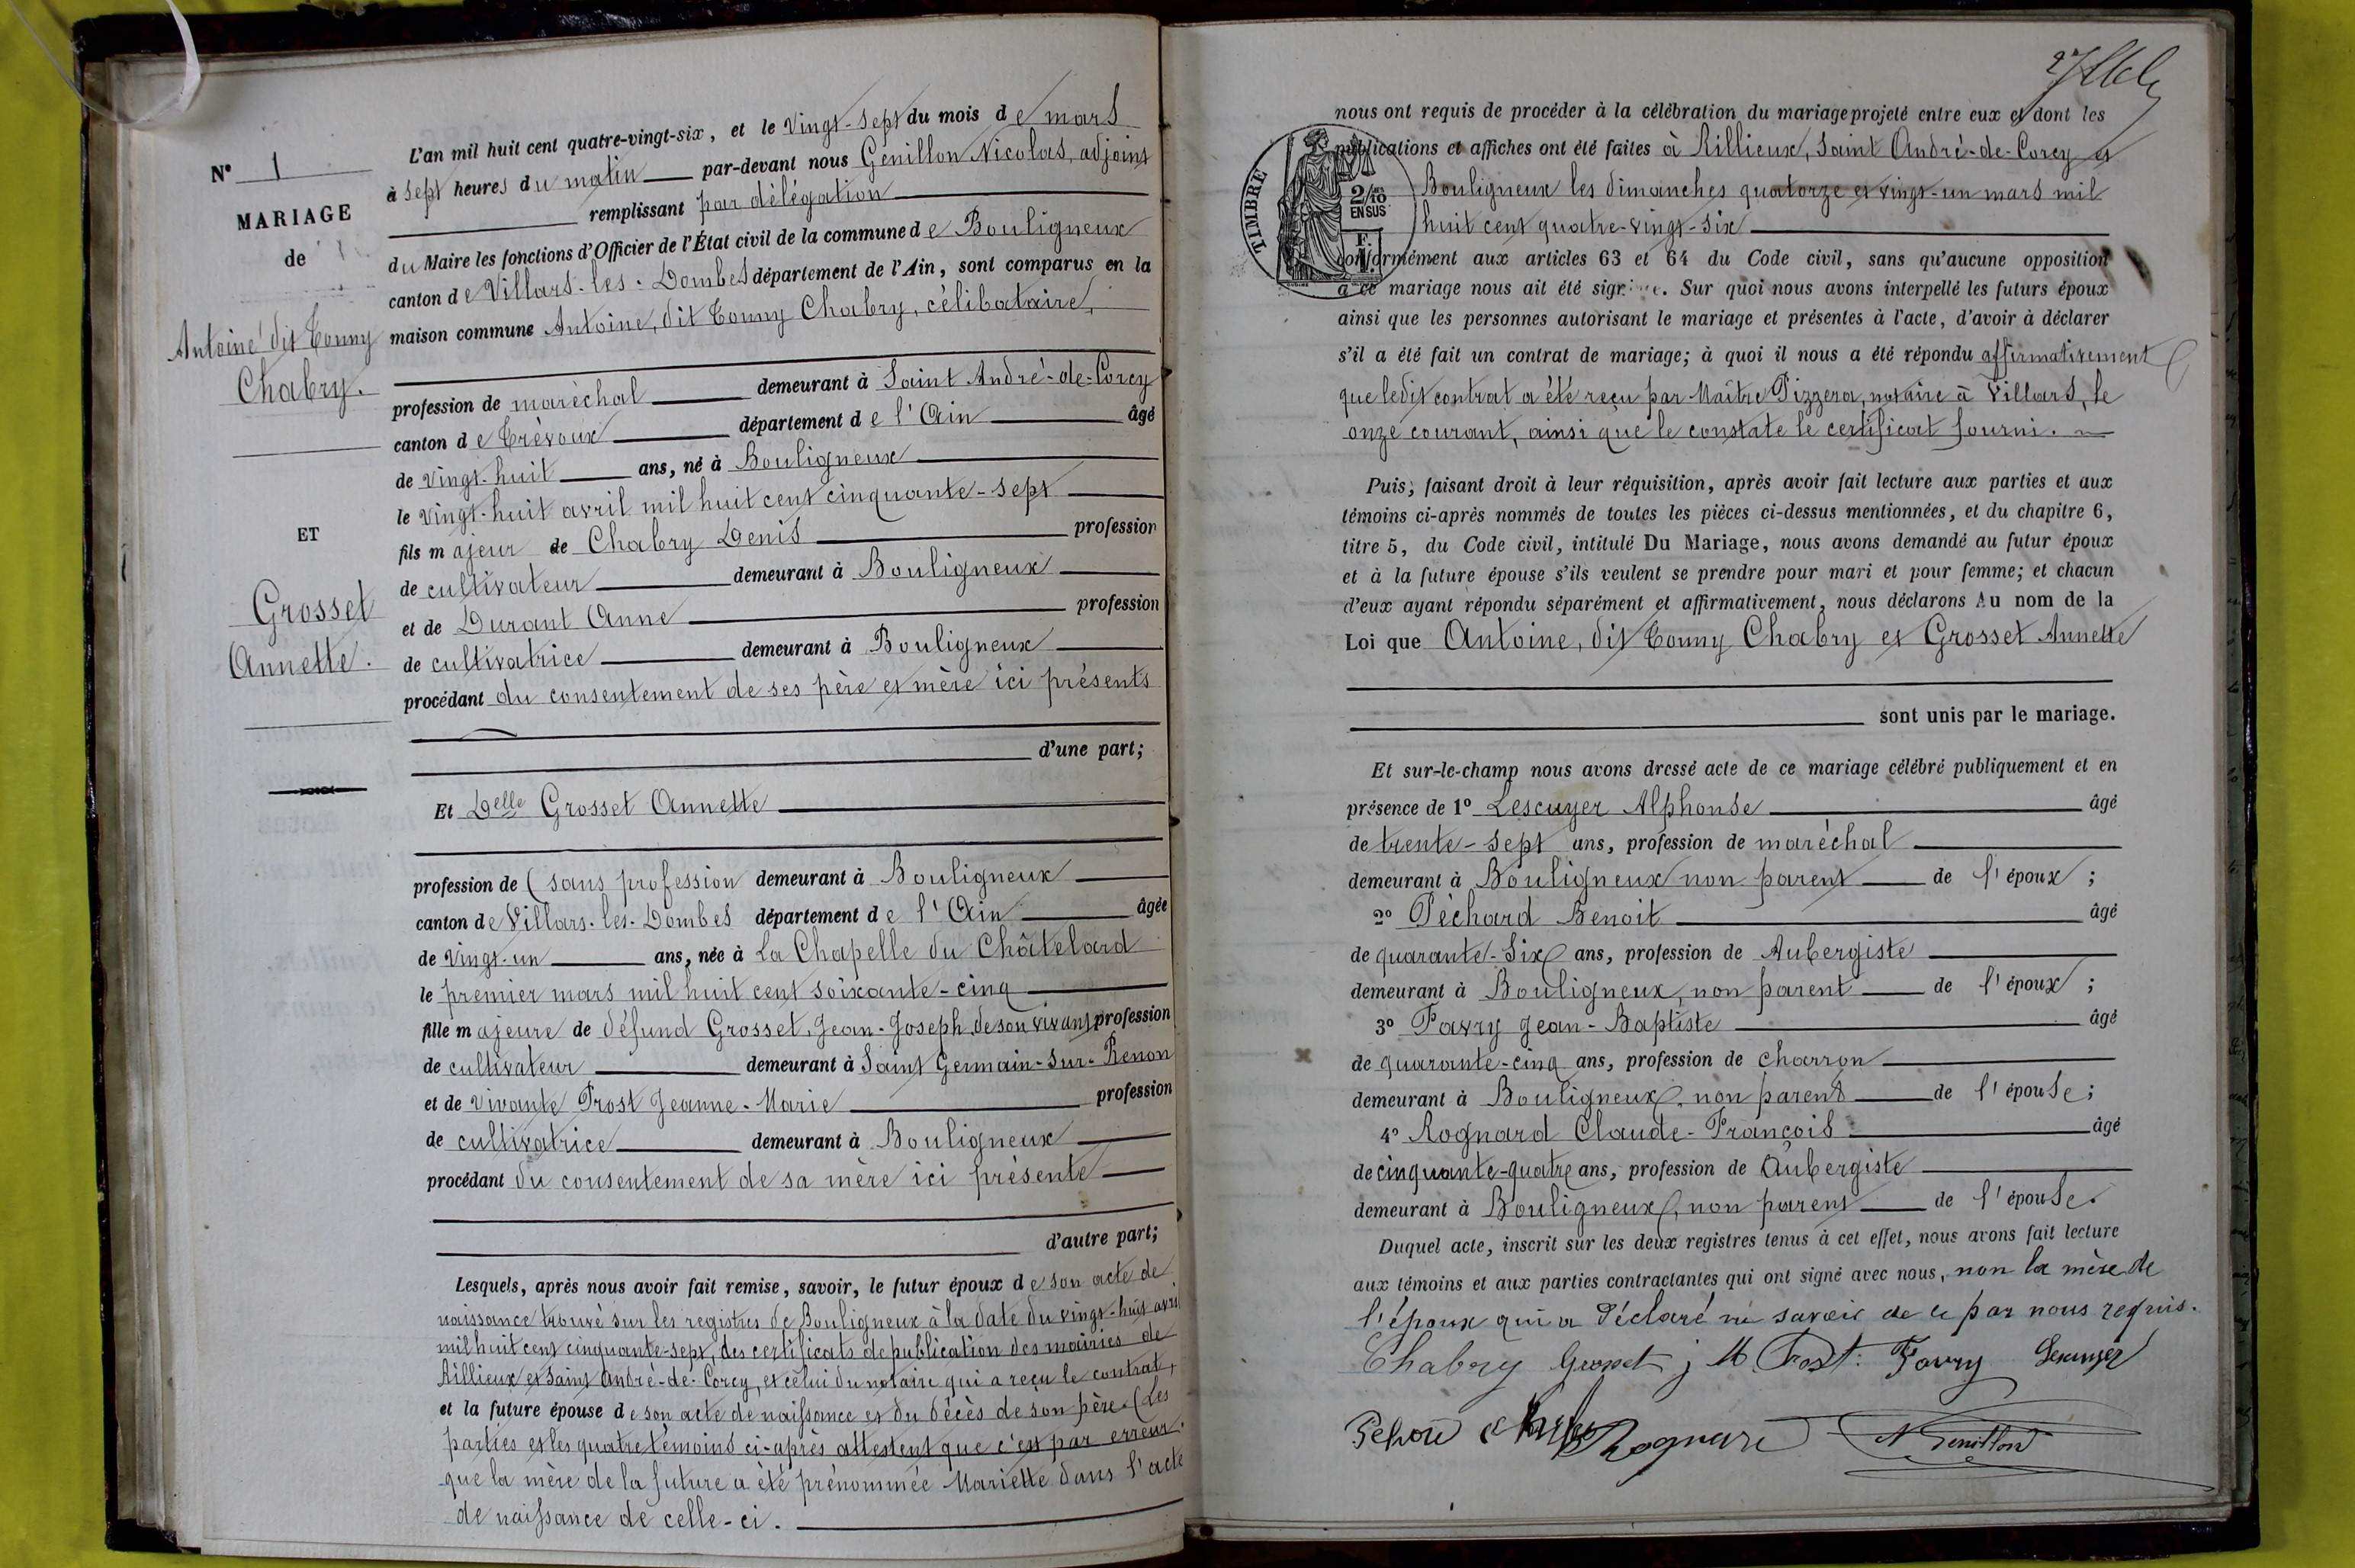 N° 1
MARIAGE
de
Antoine dit Tonny
Chabry.
ET
Grosset
Annette.
L'an mil huit cent quatre-vingt-six, et le vingt-sept du mois de mars
à sept heures du matin par-devant nous Genillon Nicolas, adjoint
remplissant par délégation
du Maire les fonctions d'Officier de l'État civil de la commune de Bouligneux
canton de Villars-les-Dombes département de l'Ain, sont comparus en la
maison commune Antoine, dit Tonny Chabry, célibataire,
profession de maréchal demeurant à Saint André-de-Corcy
canton de Trévoux département de l'Ain âgé
de vingt-huit ans, né à Bouligneux
le vingt-huit avril mil huit cent cinquante-sept
fils majeur de Chabry Denis profession
de cultivateur demeurant à Bouligneux
et de Durant Anne profession
de cultivatrice demeurant à Bouligneux
procédant du consentement de ses père et mère ici présents
d'une part;
Et Delle Grosset Annette
profession de (sans profession demeurant à Bouligneux
canton de Villars-les-Dombes département de l'Ain âgée
de vingt-un ans, née à La Chapelle du Châtelard
le premier mars mil huit cent soixante-cinq
fille majeure de défund Grosset, Jean-Joseph, de son vivant profession
de cultivateur demeurant à Saint Germain-sur-Renon
et de vivante Prost Jeanne-Marie profession
de cultivatrice demeurant à Bouligneux
procédant du consentement de sa mère ici présente
d'autre part;
Lesquels, après nous avoir fait remise, savoir, le futur époux de son acte de
naissance trouvé sur les registres de Bouligneux à la date du vingt-huit avril
mil huit cent cinquante-sept, des certificats de publication des mairies de
Rillieux et Saint André-de-Corcy, et celui du notaire qui a reçu le contrat,
et la future épouse de son acte de naissance et du décès de son père. (Les
parties et les quatre témoins ci-après attestent que c'est par erreur
que la mère de la future a été prénommée Mariette dans l'acte
de naissance de celle-ci.
nous ont requis de procéder à la célébration du mariage projeté entre eux et dont les
publications et affiches ont été faites à Rillieux, Saint André-de-Corcy et
Bouligneux les dimanches quatorze et vingt-un mars mil
huit cent quatre-vingt-six
TIMBRE
2/10
EN SUS
conformément aux articles 63 et 64 du Code civil, sans qu'aucune opposition
à ce mariage nous ait été signifiée. Sur quoi nous avons interpellé les futurs époux
ainsi que les personnes autorisant le mariage et présentes à l'acte, d'avoir à déclarer
s'il a été fait un contrat de mariage; à quoi il nous a été répondu affirmativement
que le dit contrat a été reçu par Maître Pizzera, notaire à Villars, le
onze courant, ainsi que le constate le certificat fourni.
Puis, faisant droit à leur réquisition, après avoir fait lecture aux parties et aux
témoins ci-après nommés de toutes les pièces ci-dessus mentionnées, et du chapitre 6,
titre 5, du Code civil, intitulé Du Mariage, nous avons demandé au futur époux
et à la future épouse s'ils veulent se prendre pour mari et pour femme; et chacun
d'eux ayant répondu séparément et affirmativement, nous déclarons Au nom de la
Loi que Antoine, dit Tonny Chabry et Grosset Annette
sont unis par le mariage.
Et sur-le-champ nous avons dressé acte de ce mariage célébré publiquement et en
présence de 1° Lescuyer Alphonse âgé
de trente-sept ans, profession de maréchal
demeurant à Bouligneux non parent de l'époux;
2° Péchard Benoit âgé
de quarante-six ans, profession de Aubergiste
demeurant à Bouligneux, non parent de l'époux;
3° Favry Jean-Baptiste âgé
de quarante-cinq ans, profession de charron
demeurant à Bouligneux, non parent de l'épouse;
4° Rognard Claude-François âgé
de cinquante-quatre ans, profession de Aubergiste
demeurant à Bouligneux, non parent de l'épouse.
Duquel acte, inscrit sur les deux registres tenus à cet effet, nous avons fait lecture
aux témoins et aux parties contractantes qui ont signé avec nous, non la mère de
l'époux qui a déclaré ne savoir de ce par nous requis.
Chabry Grosset j M Prost. Favry Lescuyer
Rognard N Genillon